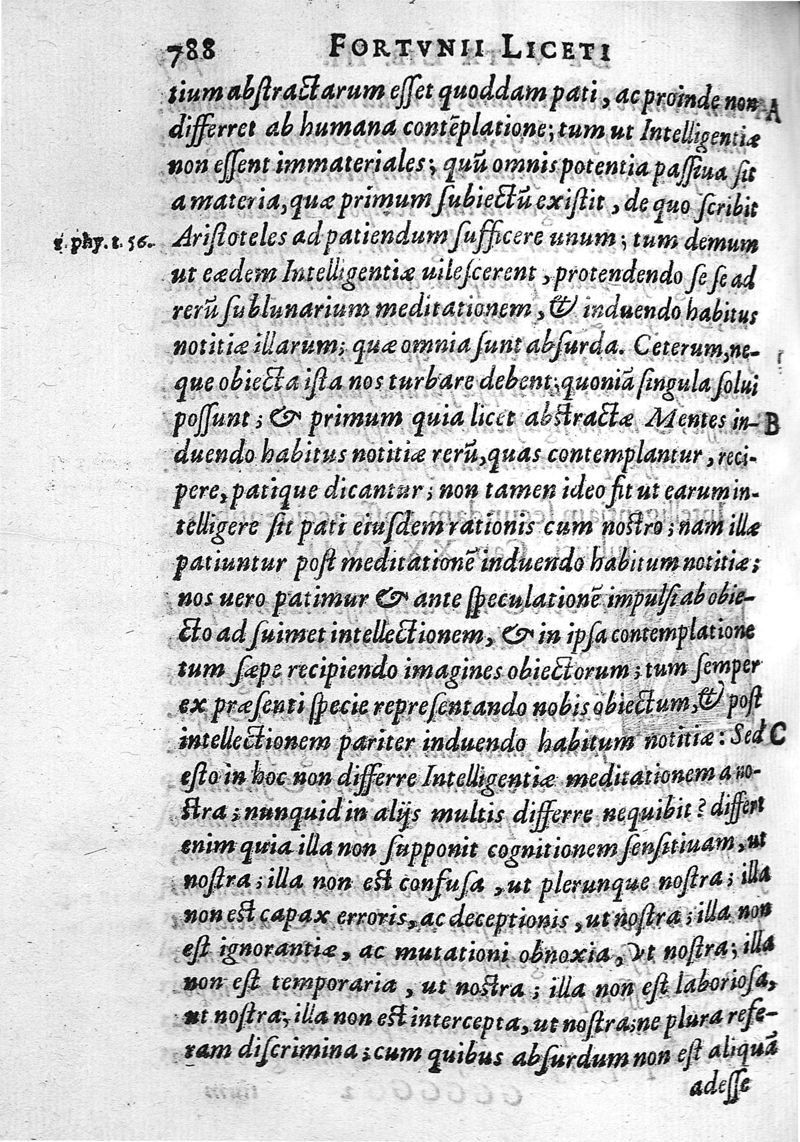 788 FORTVNII LICETI
tium abſtractarum eſſet quoddam pati, ac proinde non A
differret ab humana contẽplatione; tum ut Intelligentiæ
non eſſent immateriales; quũ omnis potentia paſſiua ſit
a materia, quæ primum ſubiectũ exiſtit, de quo ſcribit
phy. t. 56. Ariſtoteles ad patiendum ſufficere unum; tum demum
ut eædem Intelligentiæ uileſcerent, protendendo ſe ſe ad
rerũ ſublunarium meditationem, & induendo habitus
notitiæ illarum; quæ omnia ſunt abſurda. Ceterum, ne-
que obiecta iſta nos turbare debent; quoniã ſingula ſolui
poſſunt; & primum quia licet abſtractæ Mentes in- B
duendo habitus notitiæ rerũ, quas contemplantur, reci-
pere, patique dicantur; non tamen ideo fit ut earum in-
telligere ſit pati eiuſdem rationis cum noſtro; nam illæ
patiuntur poſt meditationẽ induendo habitum notitiæ;
nos uero patimur & ante ſpeculationẽ impulſi ab obie-
cto ad ſuimet intellectionem, & in ipſa contemplatione
tum ſæpe recipiendo imagines obiectorum; tum ſemper
ex præſenti ſpecie repreſentando nobis obiectum, & poſt
intellectionem pariter induendo habitum notitiæ: Sed C
eſto in hoc non differre Intelligentiæ meditationem a no-
ſtra; nunquid in alijs multis differre nequibit? differt
enim quia illa non ſupponit cognitionem ſenſitiuam, ut
noſtra; illa non eſt confuſa, ut plerunque noſtra; illa
non eſt capax erroris, ac deceptionis, ut noſtra; illa non
eſt ignorantiæ, ac mutationi obnoxia, ut noſtra; illa
non eſt temporaria, ut noſtra; illa non eſt laborioſa,
ut noſtra; illa non eſt intercepta, ut noſtra; ne plura refe-
ram diſcrimina; cum quibus abſurdum non eſt aliquã
adeſſe